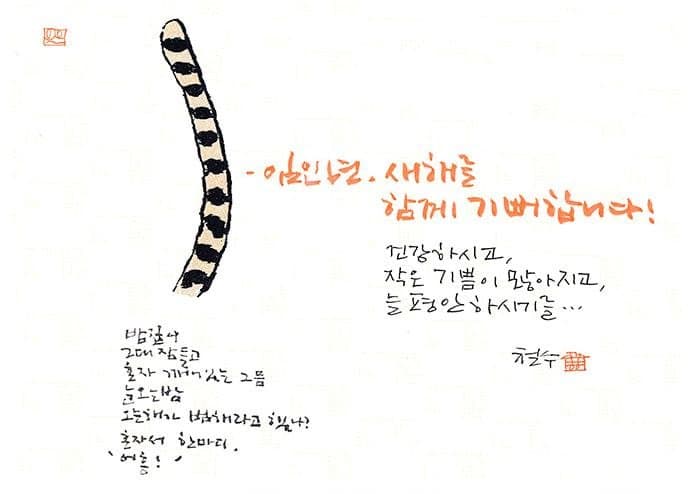 - 임인년. 새해를
함께 기뻐합니다!
건강하시고,
작은 기쁨이 많아지고,
늘 평안하시기를...
철수
밤깊어
그대 잠들고
혼자 깨어있는 그믐
눈오는밤
오는해가 범해라고 했나?
혼자서 한마디.
'어흥!'